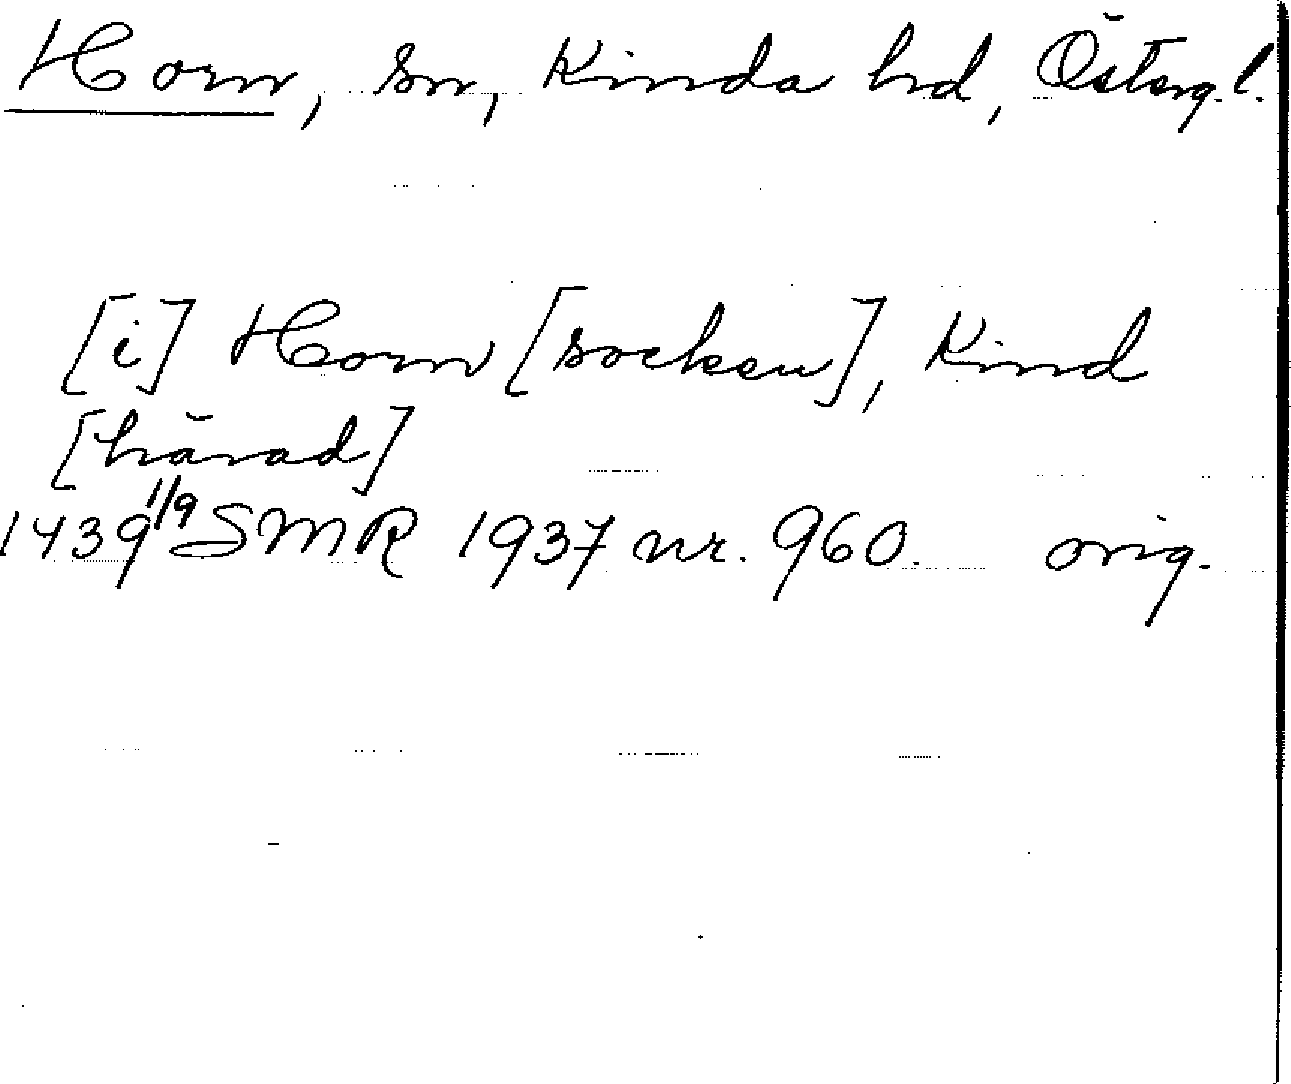 Horn, sn, Kinda hd, Österg. l.
[i] Horn [socken], Kind
[härad]
1439 1/9 SMR 1937 nr. 960. orig.